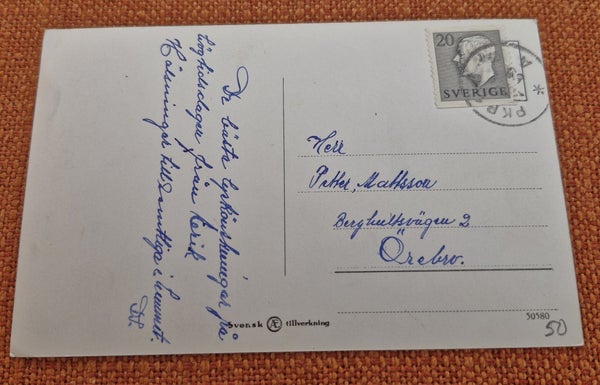 De bästa lyckönskningar på
högtidsdagen från Kerik
Hälsningar till samtliga i hemmet.
20
SVERIGE
PKP
Herr
Petter, Mattsson
Berghultsvägen 2
Örebro.
Svensk Æ tillverkning
50580
50